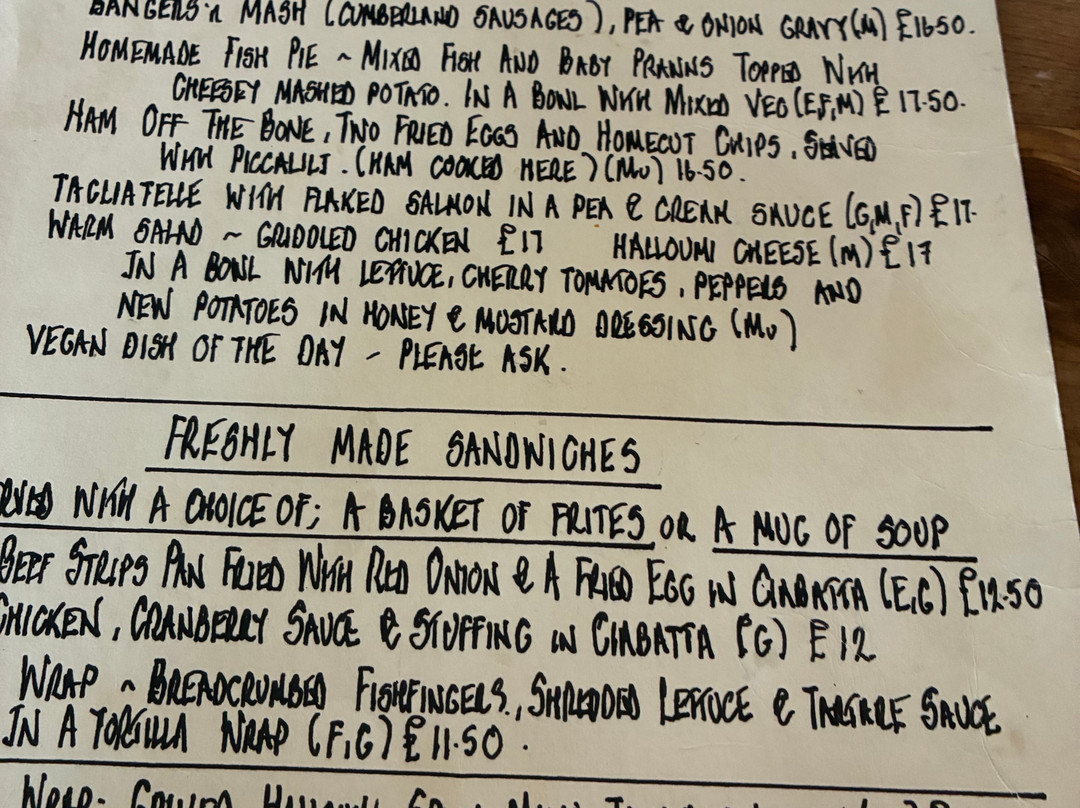 BANGERS 'n MASH (CUMBERLAND SAUSAGES), PEA & ONION GRAVY (M) £16.50.
HOMEMADE FISH PIE ~ MIXED FISH AND BABY PRAWNS TOPPED WITH
CHEESEY MASHED POTATO. IN A BOWL WITH MIXED VEG (E,F,M) £ 17.50.
HAM OFF THE BONE, TWO FRIED EGGS AND HOMECUT CHIPS, SERVED
WITH PICCALILI. (HAM COOKED HERE) (Mu) 16.50.
TAGLIATELLE WITH FLAKED SALMON IN A PEA & CREAM SAUCE (G,M,F) £17.
WARM SALAD ~ GRIDDLED CHICKEN £17 HALLOUMI CHEESE (M) £17
IN A BOWL WITH LETTUCE, CHERRY TOMATOES, PEPPERS AND
NEW POTATOES IN HONEY & MUSTARD DRESSING (Mu)
VEGAN DISH OF THE DAY - PLEASE ASK.
FRESHLY MADE SANDWICHES
WITH A CHOICE OF; A BASKET OF FRITES OR A MUG OF SOUP
BEEF STRIPS PAN FRIED WITH RED ONION & A FRIED EGG IN CIABATTA (E,G) £12.50
CHICKEN, CRANBERRY SAUCE & STUFFING IN CIABATTA (G) £12
WRAP ~ BREADCRUMBED FISHFINGERS, SHREDDED LETTUCE & TARTARE SAUCE
IN A TORTILLA WRAP (F,G) £11.50.
WRAP: